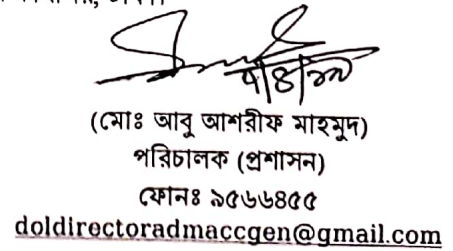 (মোঃ আবু আশরীফ মাহমুদ)
পরিচালক (প্রশাসন)
ফোনঃ ৯৫৬৬৪৫৫
doldirectoradmaccgen@gmail.com